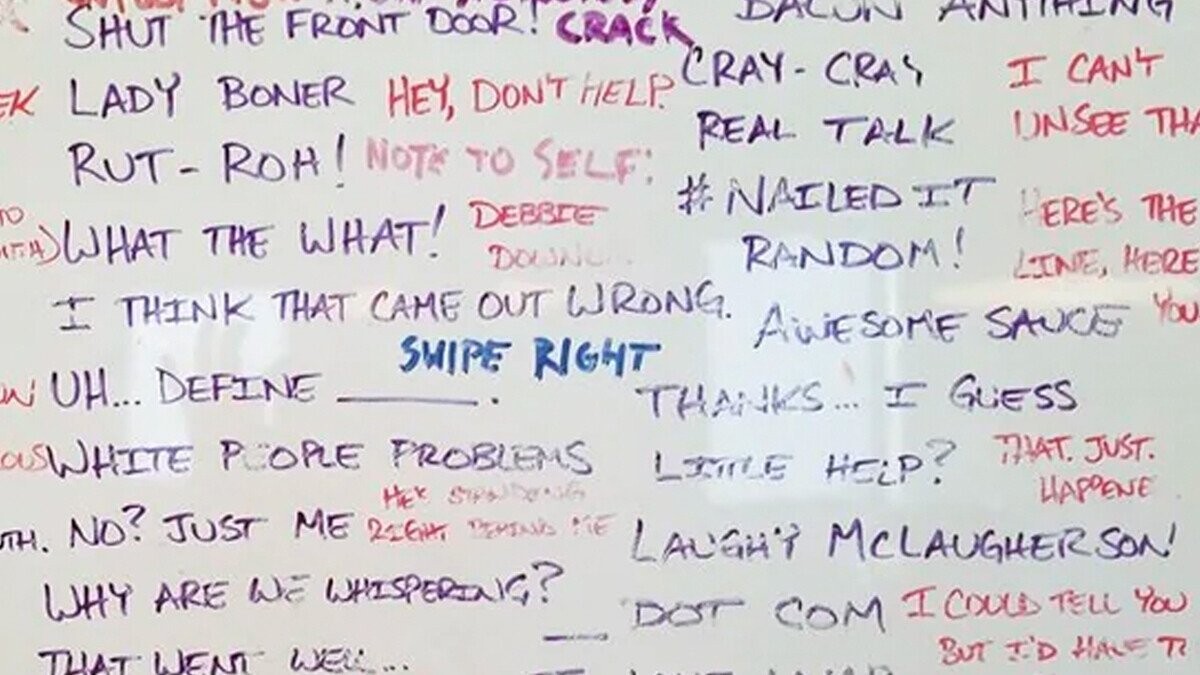 SHUT THE FRONT DOOR! CRACK
LADY BONER
HEY, DON'T HELP.
RUT-ROH!
NOTE TO SELF:
WHAT THE WHAT!
DEBBIE
I THINK THAT CAME OUT WRONG.
SWIPE RIGHT
UH... DEFINE ______.
WHITE PEOPLE PROBLEMS
NO? JUST ME
RIGHT BEHIND ME
WHY ARE WE WHISPERING?
THAT WENT WELL...
BACON ANYTHING
CRAY-CRAY
REAL TALK
#NAILED IT
RANDOM!
AWESOME SAUCE
THANKS... I GUESS
LITTLE HELP?
LAUGHY MCLAUGHERSON!
__ DOT COM
I CAN'T
UNSEE THA
HERE'S THE
LINE, HERE
YOU
THAT. JUST.
HAPPENE
I COULD TELL YOU
BUT I'D HAVE T